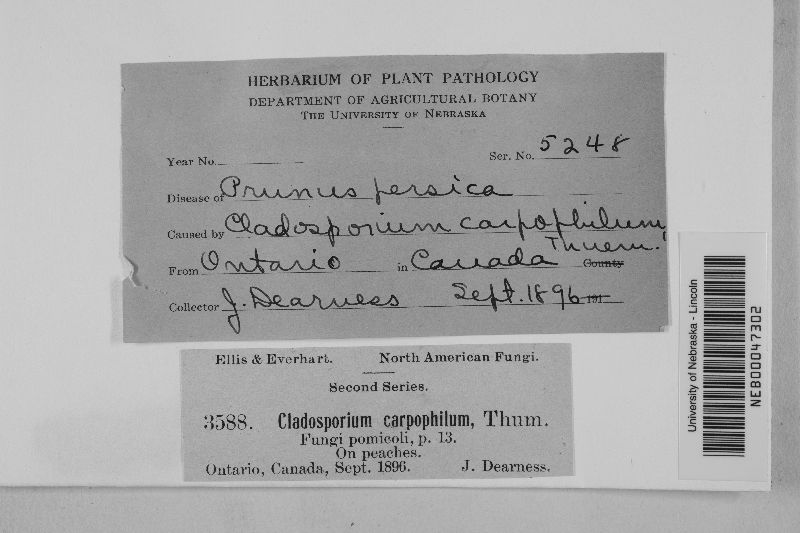 HERBARIUM OF PLANT PATHOLOGY
DEPARTMENT OF AGRICULTURAL BOTANY
THE UNIVERSITY OF NEBRASKA
Year No. Ser. No. 5248
Disease of Prunus persica
Caused by Cladosporium carpophilum
Thuem.
From Ontario in Canada County
Collector J. Dearness Sept. 1896 191
Ellis & Everhart. North American Fungi.
Second Series.
3588. Cladosporium carpophilum, Thum.
Fungi pomicoli, p. 13.
On peaches.
Ontario, Canada, Sept. 1896. J. Dearness.
University of Nebraska - Lincoln
NEB00047302